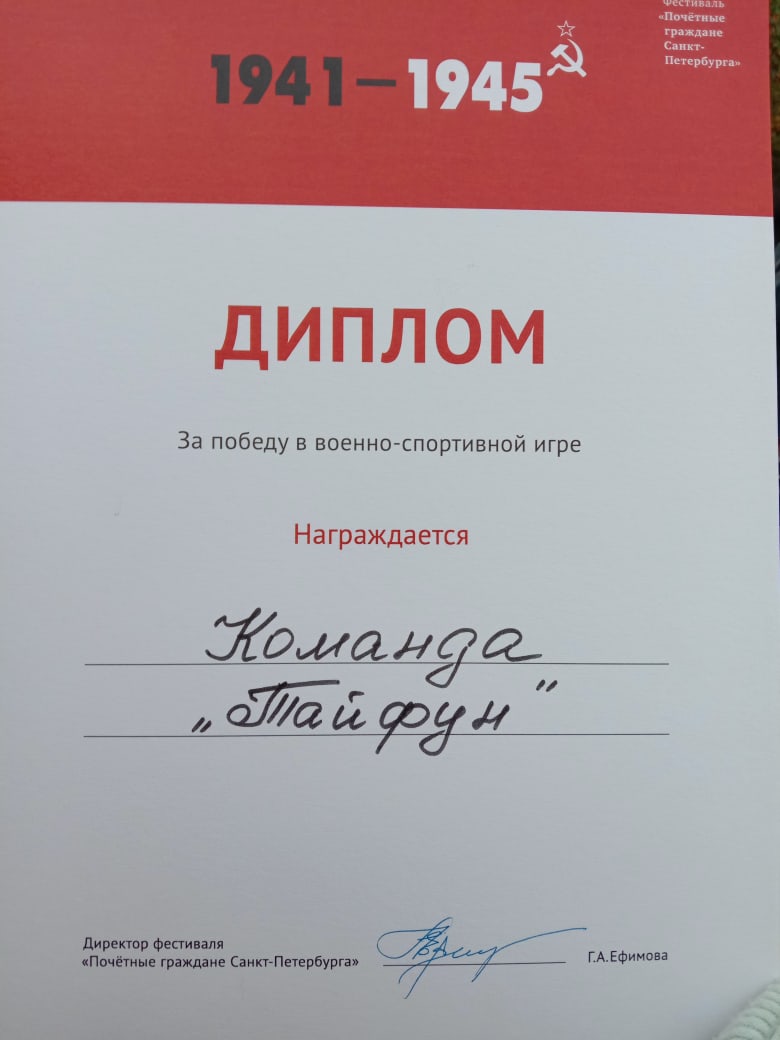 Фестиваль
«Почётные
граждане
Санкт-
Петербурга»
1941—1945
ДИПЛОМ
За победу в военно-спортивной игре
Награждается
Команда
„Тайфун"
Директор фестиваля
«Почётные граждане Санкт-Петербурга»
Г.А.Ефимова